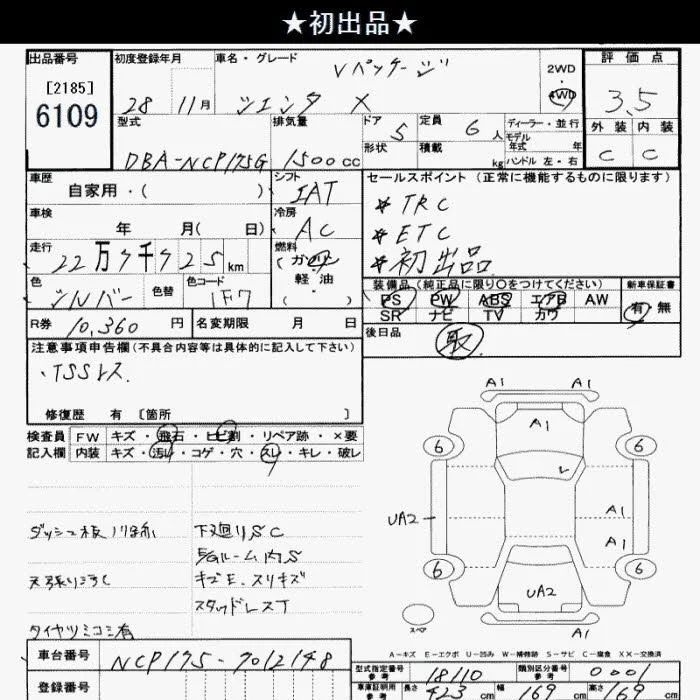 ★初出品★
出品番号 初度登録年月 車名・グレード Vパッケージ 2WD・4WD 評価点
[2185]
6109
28 11月 シエンタ X 3.5
型式 排気量 ドア 5 定員 6人 ディーラー・並行 外装 内装
モデル 年式 年
DBA-NCP175G 1500cc 形状 積載 kg ハンドル 左・右 C C
車歴 シフト セールスポイント (正常に機能するものに限ります)
自家用・( ) IAT
* TRC
車検 冷房
年 月( 日) AC
* ETC
走行 燃料
22万 千 25 km (ガソリン・軽油・ )
* 初出品
色 色替 色コード 装備品(純正品に限り○をつけてください) 新車保証書
シルバー 1F7 PS PW ABS エアB AW 有・無
SR ナビ TV カワ
R券 10,360円 名変期限 月 日 後日品
取
注意事項申告欄(不具合内容等は具体的に記入して下さい)
・TSSレス.
修復歴 有 [箇所 ]
検査員 FW キズ・飛石・ヒビ割・リペア跡・×要
記入欄 内装 キズ・汚レ・コゲ・穴・スレ・キレ・破レ
A1 A1
A1
6 6
UA2 A1
A1
6 6
UA2
スペア A1
下廻りSC
内S
キズE.スリキズ
スタッドレスT
タイヤツミコミ有
A-キズ E-エクボ U-凹み W-補修跡 S-サビ C-腐食 XX-交換済
車台番号 NCP175-7012148
型式指定番号 参考 18110 類別区分番号 参考 0001
登録番号
車庫証明用 参考 長さ 423 cm 幅 169 cm 高さ 169 cm